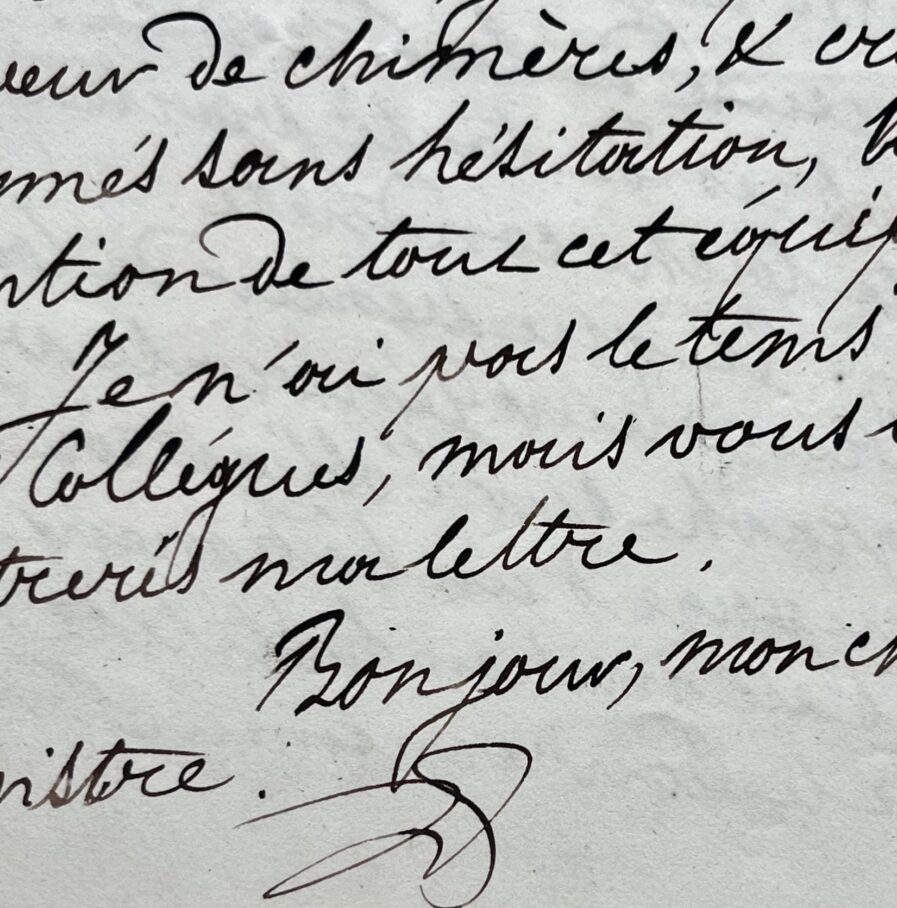 veur de chimères, & cr
més sans hésitation,
ntion de tout cet équip
Je n'ai pas le tems
Collégues, mais vous
trerés ma lettre.
Bonjour, mon ch
nistre.